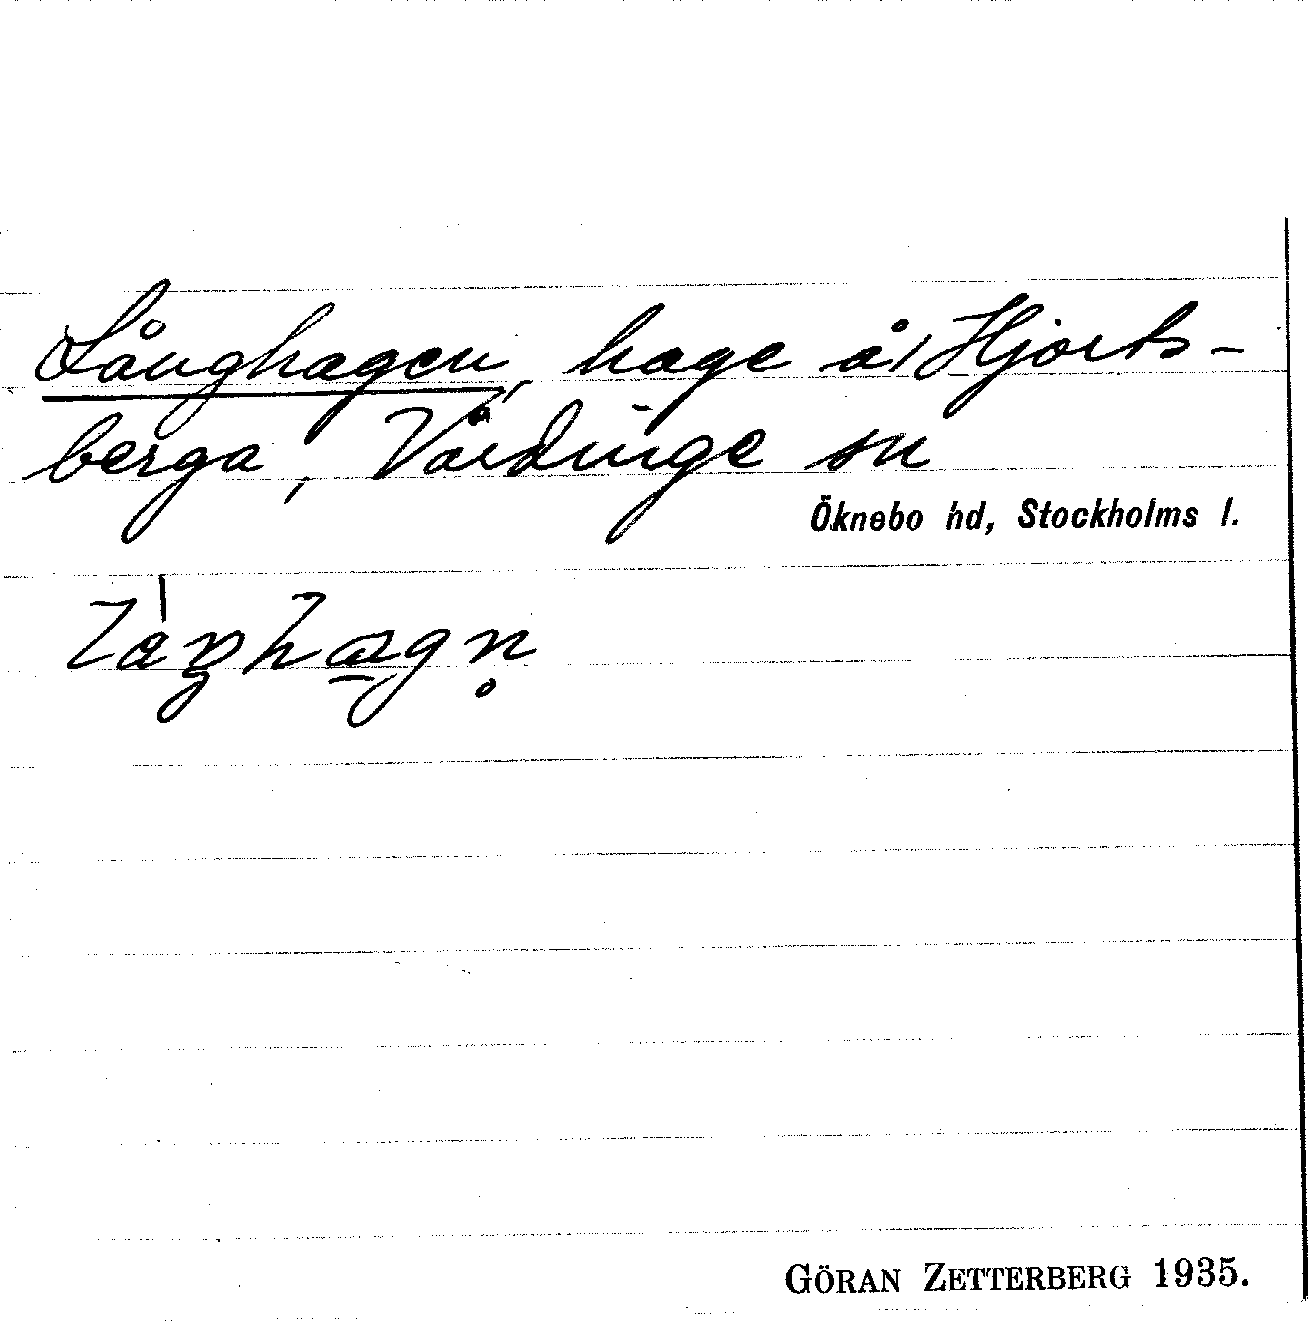 Långhagen, hage å Hjorts-
berga, Vårdinge sn
Öknebo hd, Stockholms l.
GÖRAN ZETTERBERG 1935.